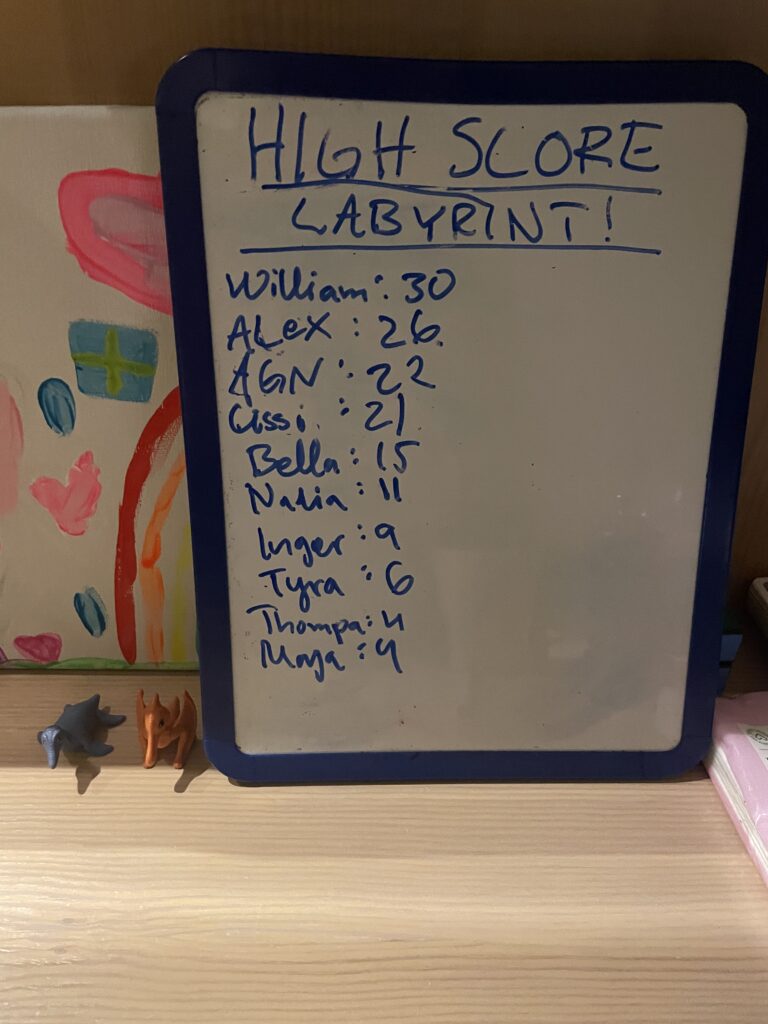 HIGH SCORE
LABYRINT!
William: 30
ALEX: 26
AGN: 22
Cissi: 21
Bella: 15
Nadia: 11
Inger: 9
Tyra: 6
Thompa: 4
Maja: 4